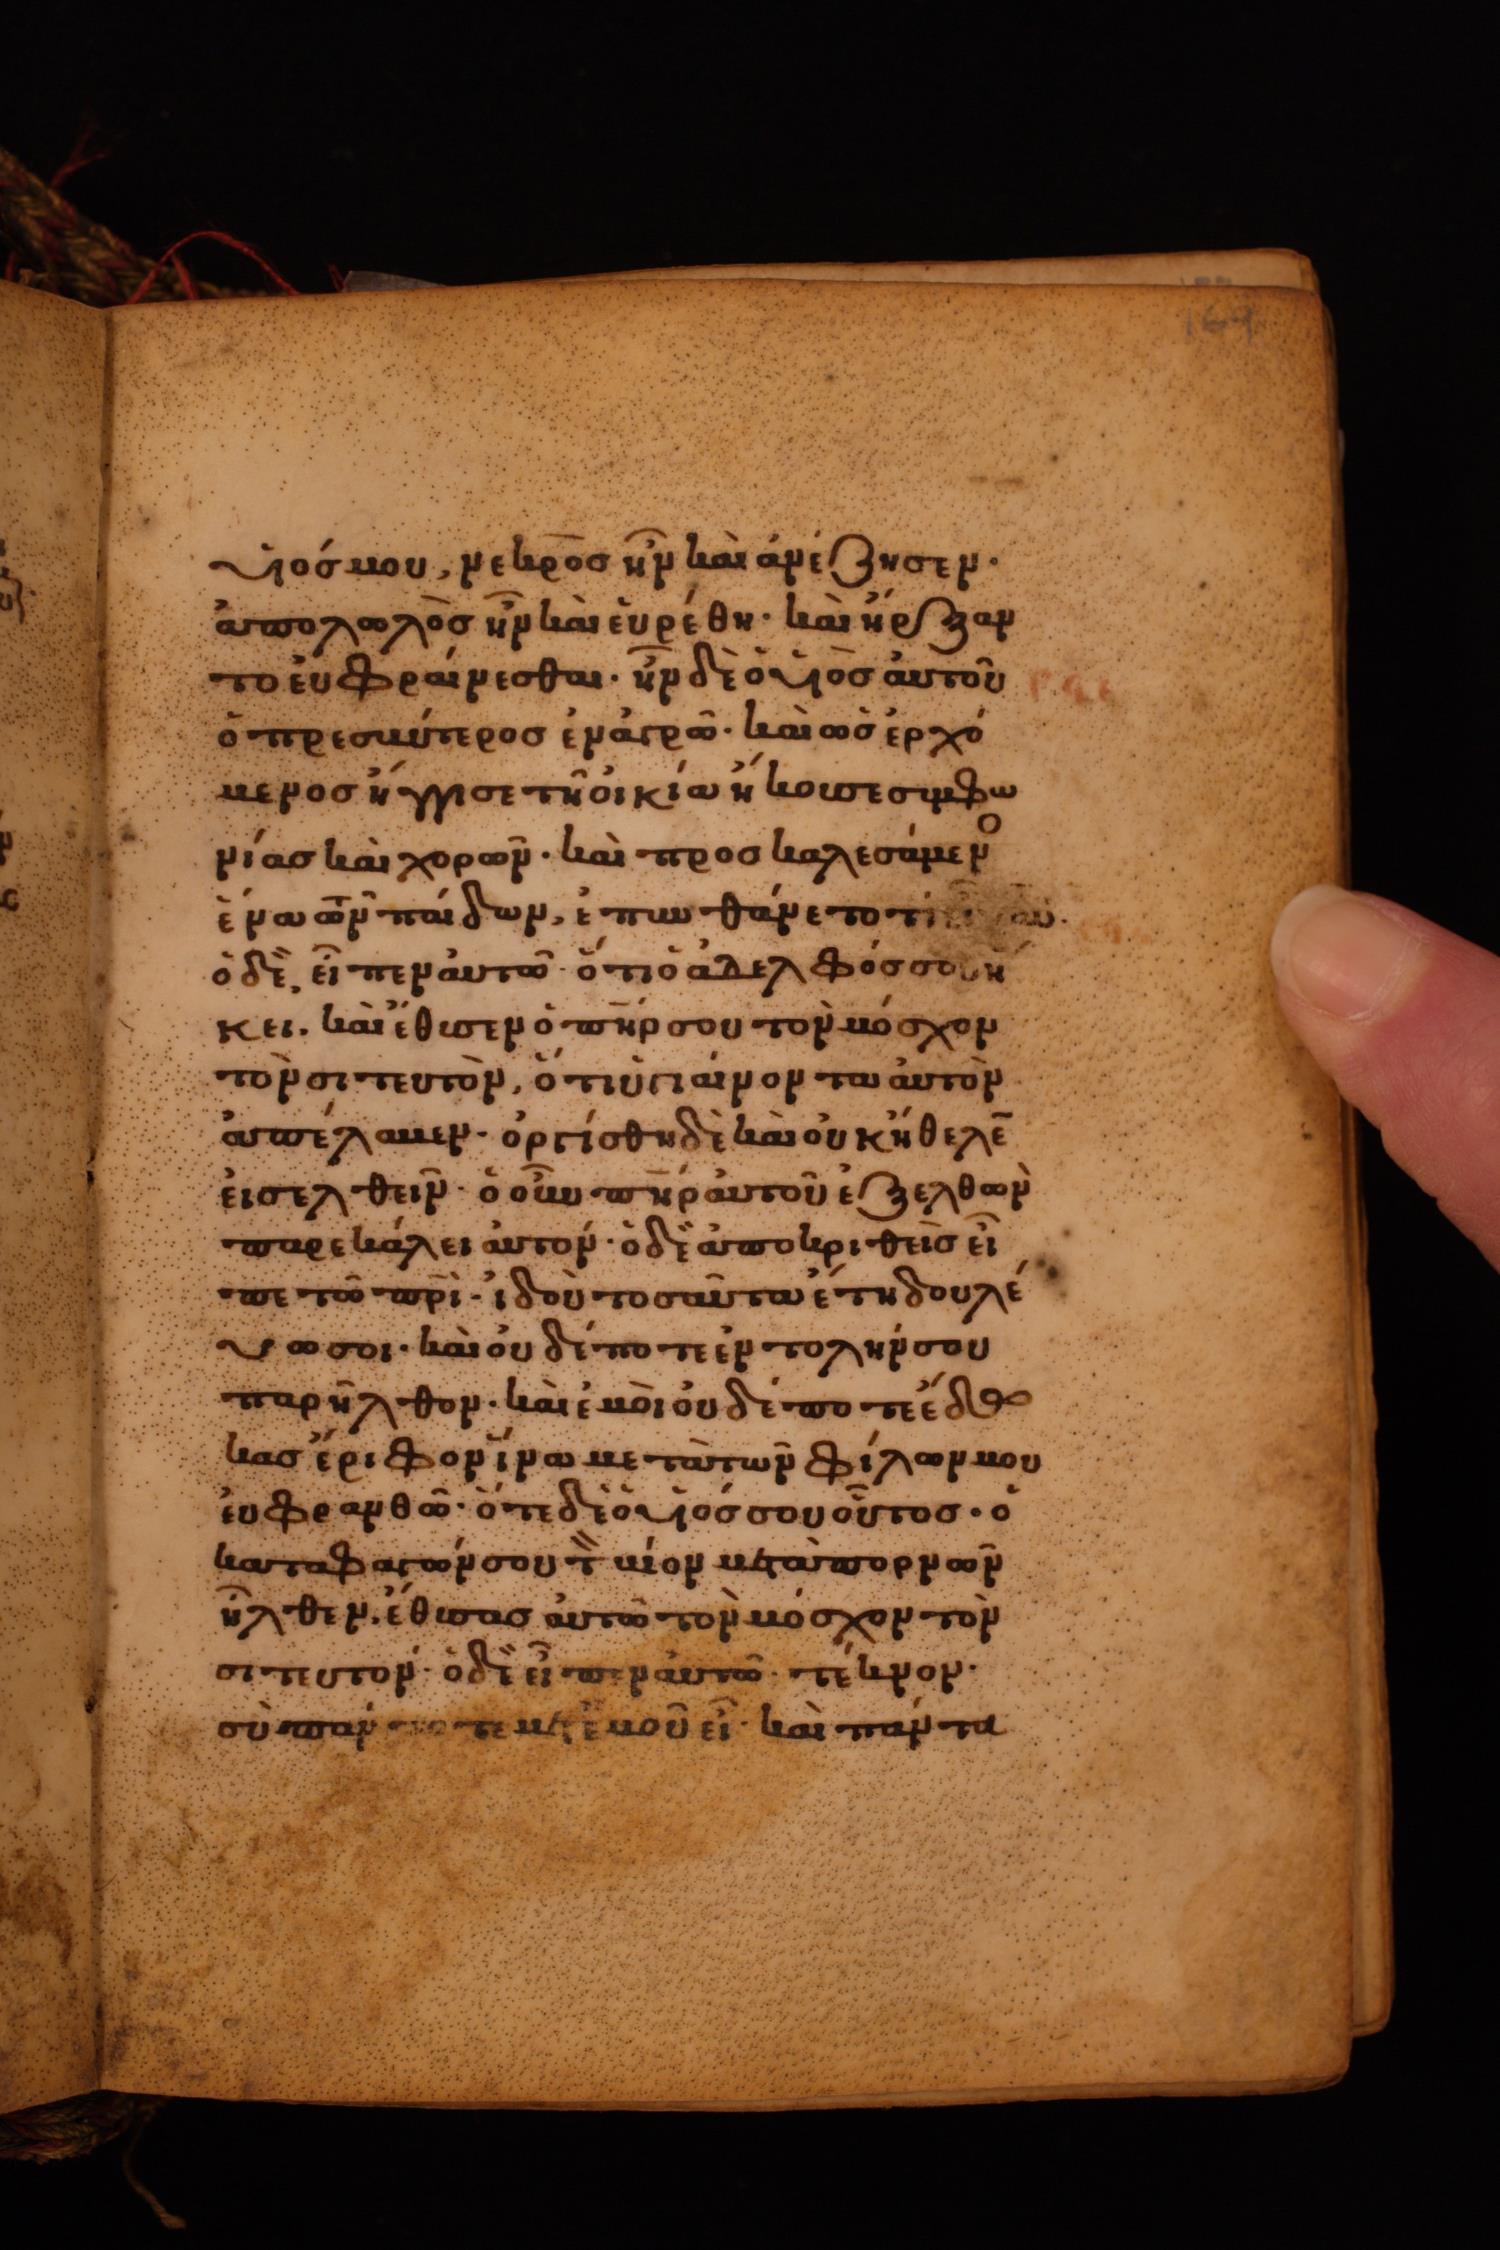 164
υἱός μου, νεκρὸς ἦν καὶ ἀνέζησεν·
ἀπολωλὸς ἦν καὶ εὑρέθη· καὶ ἤρξαν
το εὐφραίνεσθαι· ἦν δὲ ὁ υἱὸς αὐτοῦ
ὁ πρεσβύτερος ἐν ἀγρῶ· καὶ ὡς ἐρχό
μενος ἤγγισε τῆ οἰκία ἤκουσε συμφω
νίας καὶ χορῶν· καὶ προσκαλεσάμενο
ἕνα τῶν παίδων, ἐπυνθάνετο τί
ὁ δὲ, εἶπεν αὐτῶ· ὅτι ὁ ἀδελφός σου ἥ
κει. καὶ ἔθυσεν ὁ πη̄ρ σου τὸν μόσχον
τὸν σιτευτὸν, ὅτι ὑγιαίνοντα αὐτὸν
ἀπέλαβεν· ὀργίσθη δὲ καὶ οὐκ ἤθελε̄
εἰσελθεῖν· ὁ οὖν πη̄ρ αὐτοῦ ἐξελθὼν
παρεκάλει αὐτόν· ὁ δὲ ἀποκριθεὶς εἶ
πε τῶ πρ̄ὶ· ἰδοὺ τοσαῦτα ἔτη δουλέ
υω σοι· καὶ οὐδέποτε ἐντολήν σου
παρῆλθον· καὶ ἐμοὶ οὐδέποτε ἔδω
κας ἔριφον ἵνα μετὰ τῶν φίλων μου
εὐφρανθῶ· ὅτε δὲ ὁ υἱός σου οὗτος· ὁ
καταφαγών σου τ̀ βίον μετὰ πορνῶν
ἦλθεν, ἔθυσας αὐτῶ τὸν μόσχον τὸν
σιτευτόν· ὁ δὲ εἶπεν αὐτῶ· τέκνον·
σὺ πάντοτε μετ ἐμοῦ εἶ· καὶ πάντα